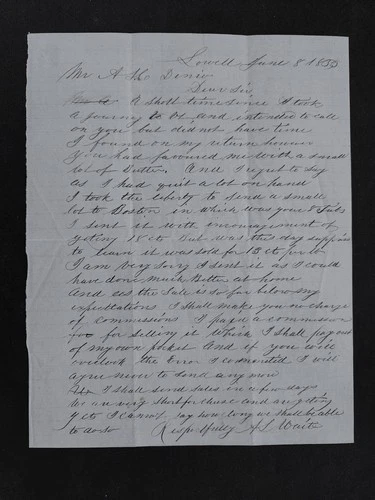 Lowell June 8 1855
Mr A
Dear Sir
A short time since I took
a journey to Vt. and intended to call
on you but did not have time
I found on my return home
You had favoured me with a small
lot of Butter. And I regret to say
as I had quit a lot on hand
I took the liberty to send a small
lot to Boston in which was your
I sent it with encouragement of
geting 18 cts But was this day
to learn it was sold for 15 cts
I am very Sorry I sent it as I could
have done much Better at home
And as the Sale is so far below my
expectations I Shall make you no charge
of commissions I paid a commission
for selling it Which I shall pay out
of my own pocket And if you will
overlook the Error I commited I will
agree never to send any more
I Shall Send Sales in a few days
We are very Short for cheese and are geting
9 cts I cannot say how long we shall be able
to do so Respectfully A S Waite